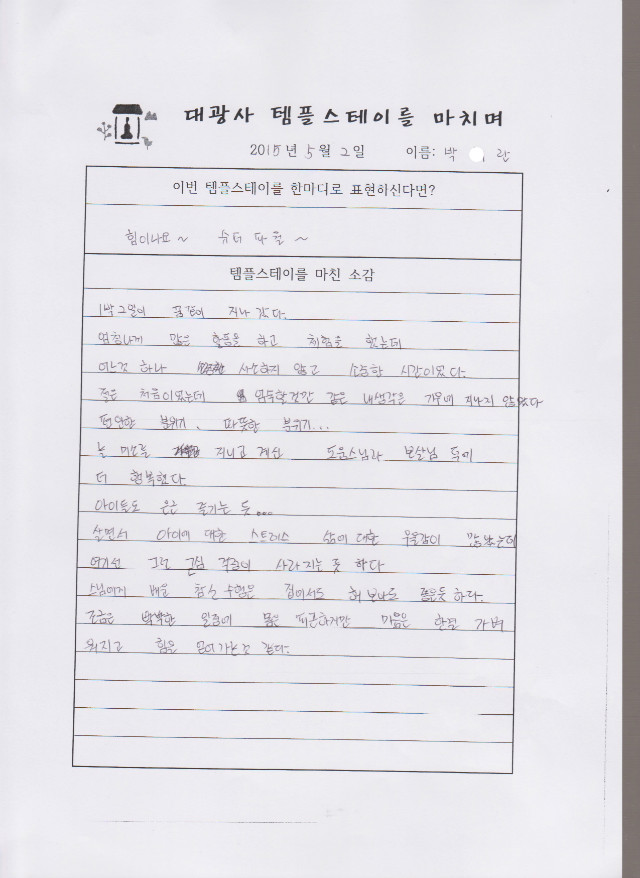 대광사 템플스테이를 마치며
2015년 5월 2일 이름: 박 란
이번 템플스테이를 한마디로 표현하신다면?
힘이나요 ~ 슈퍼 파월 ~
템플스테이를 마친 소감
1박 2일이 꿈같이 지나 갔다.
엄청나게 많은 활동을 하고 체험을 했는데
어느것 하나 사소하지 않고 소중한 시간이었다.
절은 처음이었는데 엄숙할것만 같은 내생각은 기우에 지나지 않았다
편안한 분위기, 따뜻한 분위기...
늘 미소를 지니고 계신 도운스님과 보살님 덕에
더 행복했다.
아이들도 은근 즐기는 듯...
살면서 아이에 대한 스트레스 삶에 대한 우울감이 많았는데
여기선 그런 근심 걱정이 사라지는 듯 하다
스님에게 배운 참선 수업은 집에서도 해 보나도 좋은듯 하다.
조금은 빡빡한 일정에 몸은 피곤하지만 마음은 한결 가벼
워지고 힘은 얻어가는것 같다.